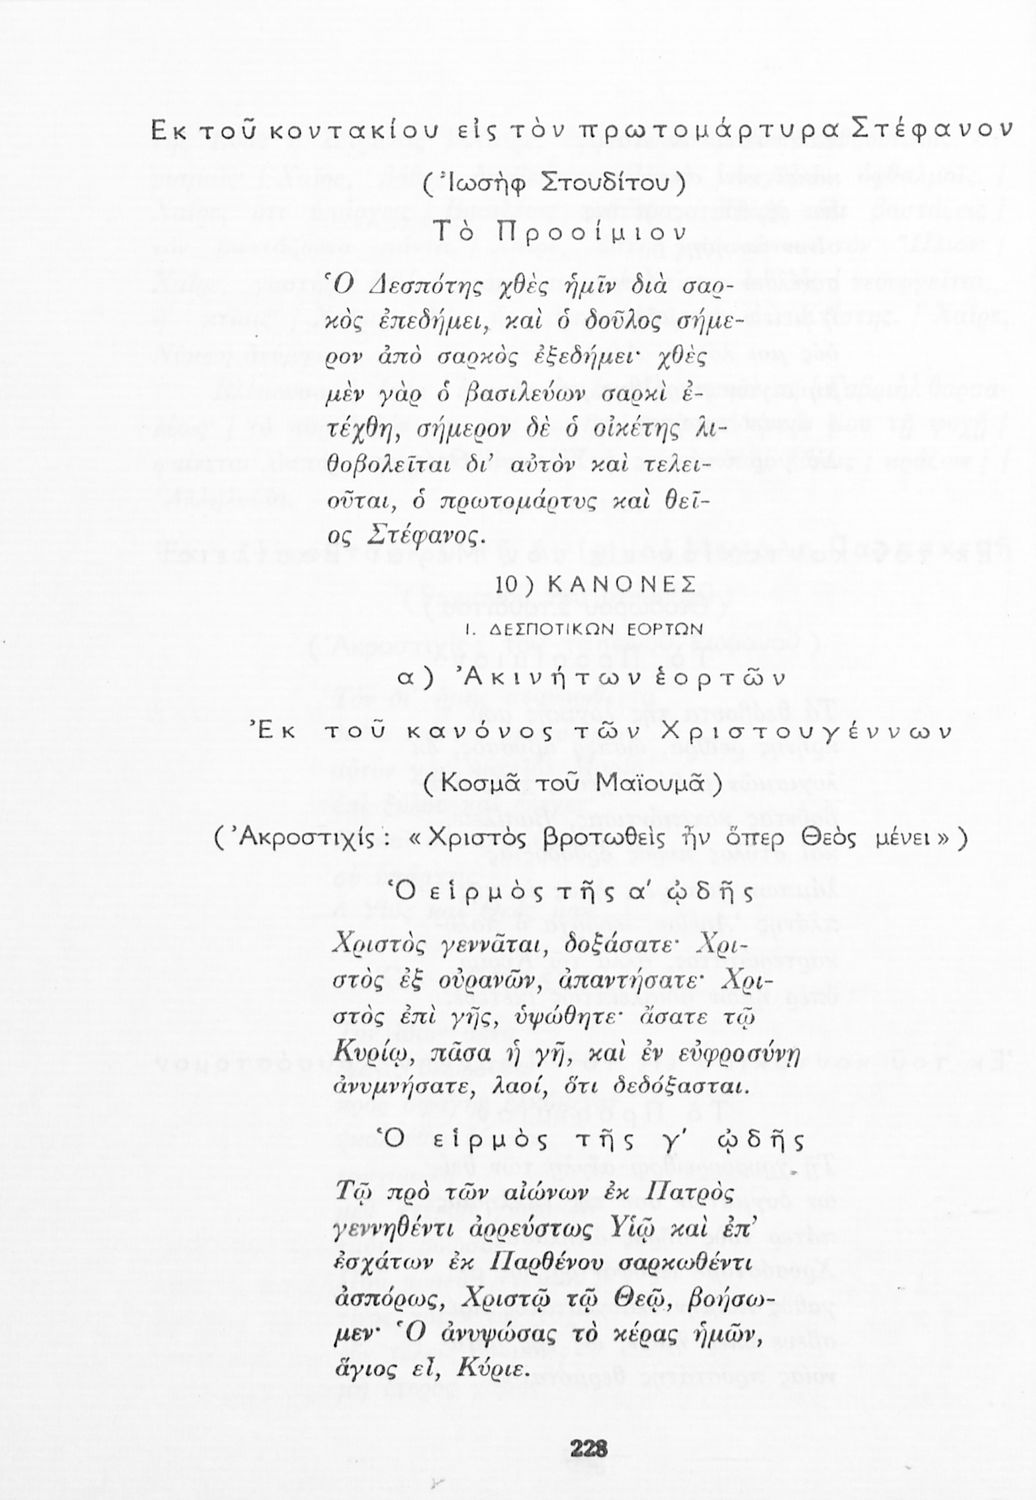 Εκ τοῦ κοντακίου εἰς τὸν πρωτομάρτυρα Στέφανον
(Ἰωσὴφ Στουδίτου)
Τὸ Προοίμιον
Ὁ Δεσπότης χθὲς ἡμῖν διὰ σαρ-
κὸς ἐπεδήμει, καὶ ὁ δοῦλος σήμε-
ρον ἀπὸ σαρκὸς ἐξεδήμει· χθὲς
μὲν γὰρ ὁ βασιλεύων σαρκὶ ἐ-
τέχθη, σήμερον δὲ ὁ οἰκέτης λι-
θοβολεῖται δι’ αὐτὸν καὶ τελει-
οῦται, ὁ πρωτομάρτυς καὶ θεῖ-
ος Στέφανος.
10) ΚΑΝΟΝΕΣ
Ι. ΔΕΣΠΟΤΙΚΩΝ ΕΟΡΤΩΝ
α) Ἀκινήτων ἑορτῶν
Ἐκ τοῦ κανόνος τῶν Χριστουγέννων
(Κοσμᾶ τοῦ Μαϊουμᾶ)
(Ἀκροστιχίς: «Χριστὸς βροτωθεὶς ἦν ὅπερ Θεὸς μένει»)
Ὁ εἱρμὸς τῆς α′ ᾠδῆς
Χριστὸς γεννᾶται, δοξάσατε· Χρι-
στὸς ἐξ οὐρανῶν, ἀπαντήσατε· Χρι-
στὸς ἐπὶ γῆς, ὑψώθητε· ἄσατε τῷ
Κυρίῳ, πᾶσα ἡ γῆ, καὶ ἐν εὐφροσύνῃ
ἀνυμνήσατε, λαοί, ὅτι δεδόξασται.
Ὁ εἱρμὸς τῆς γ′ ᾠδῆς
Τῷ πρὸ τῶν αἰώνων ἐκ Πατρὸς
γεννηθέντι ἀρρεύστως Υἱῷ καὶ ἐπ’
ἐσχάτων ἐκ Παρθένου σαρκωθέντι
ἀσπόρως, Χριστῷ τῷ Θεῷ, βοήσω-
μεν· Ὁ ἀνυψώσας τὸ κέρας ἡμῶν,
ἅγιος εἶ, Κύριε.
228